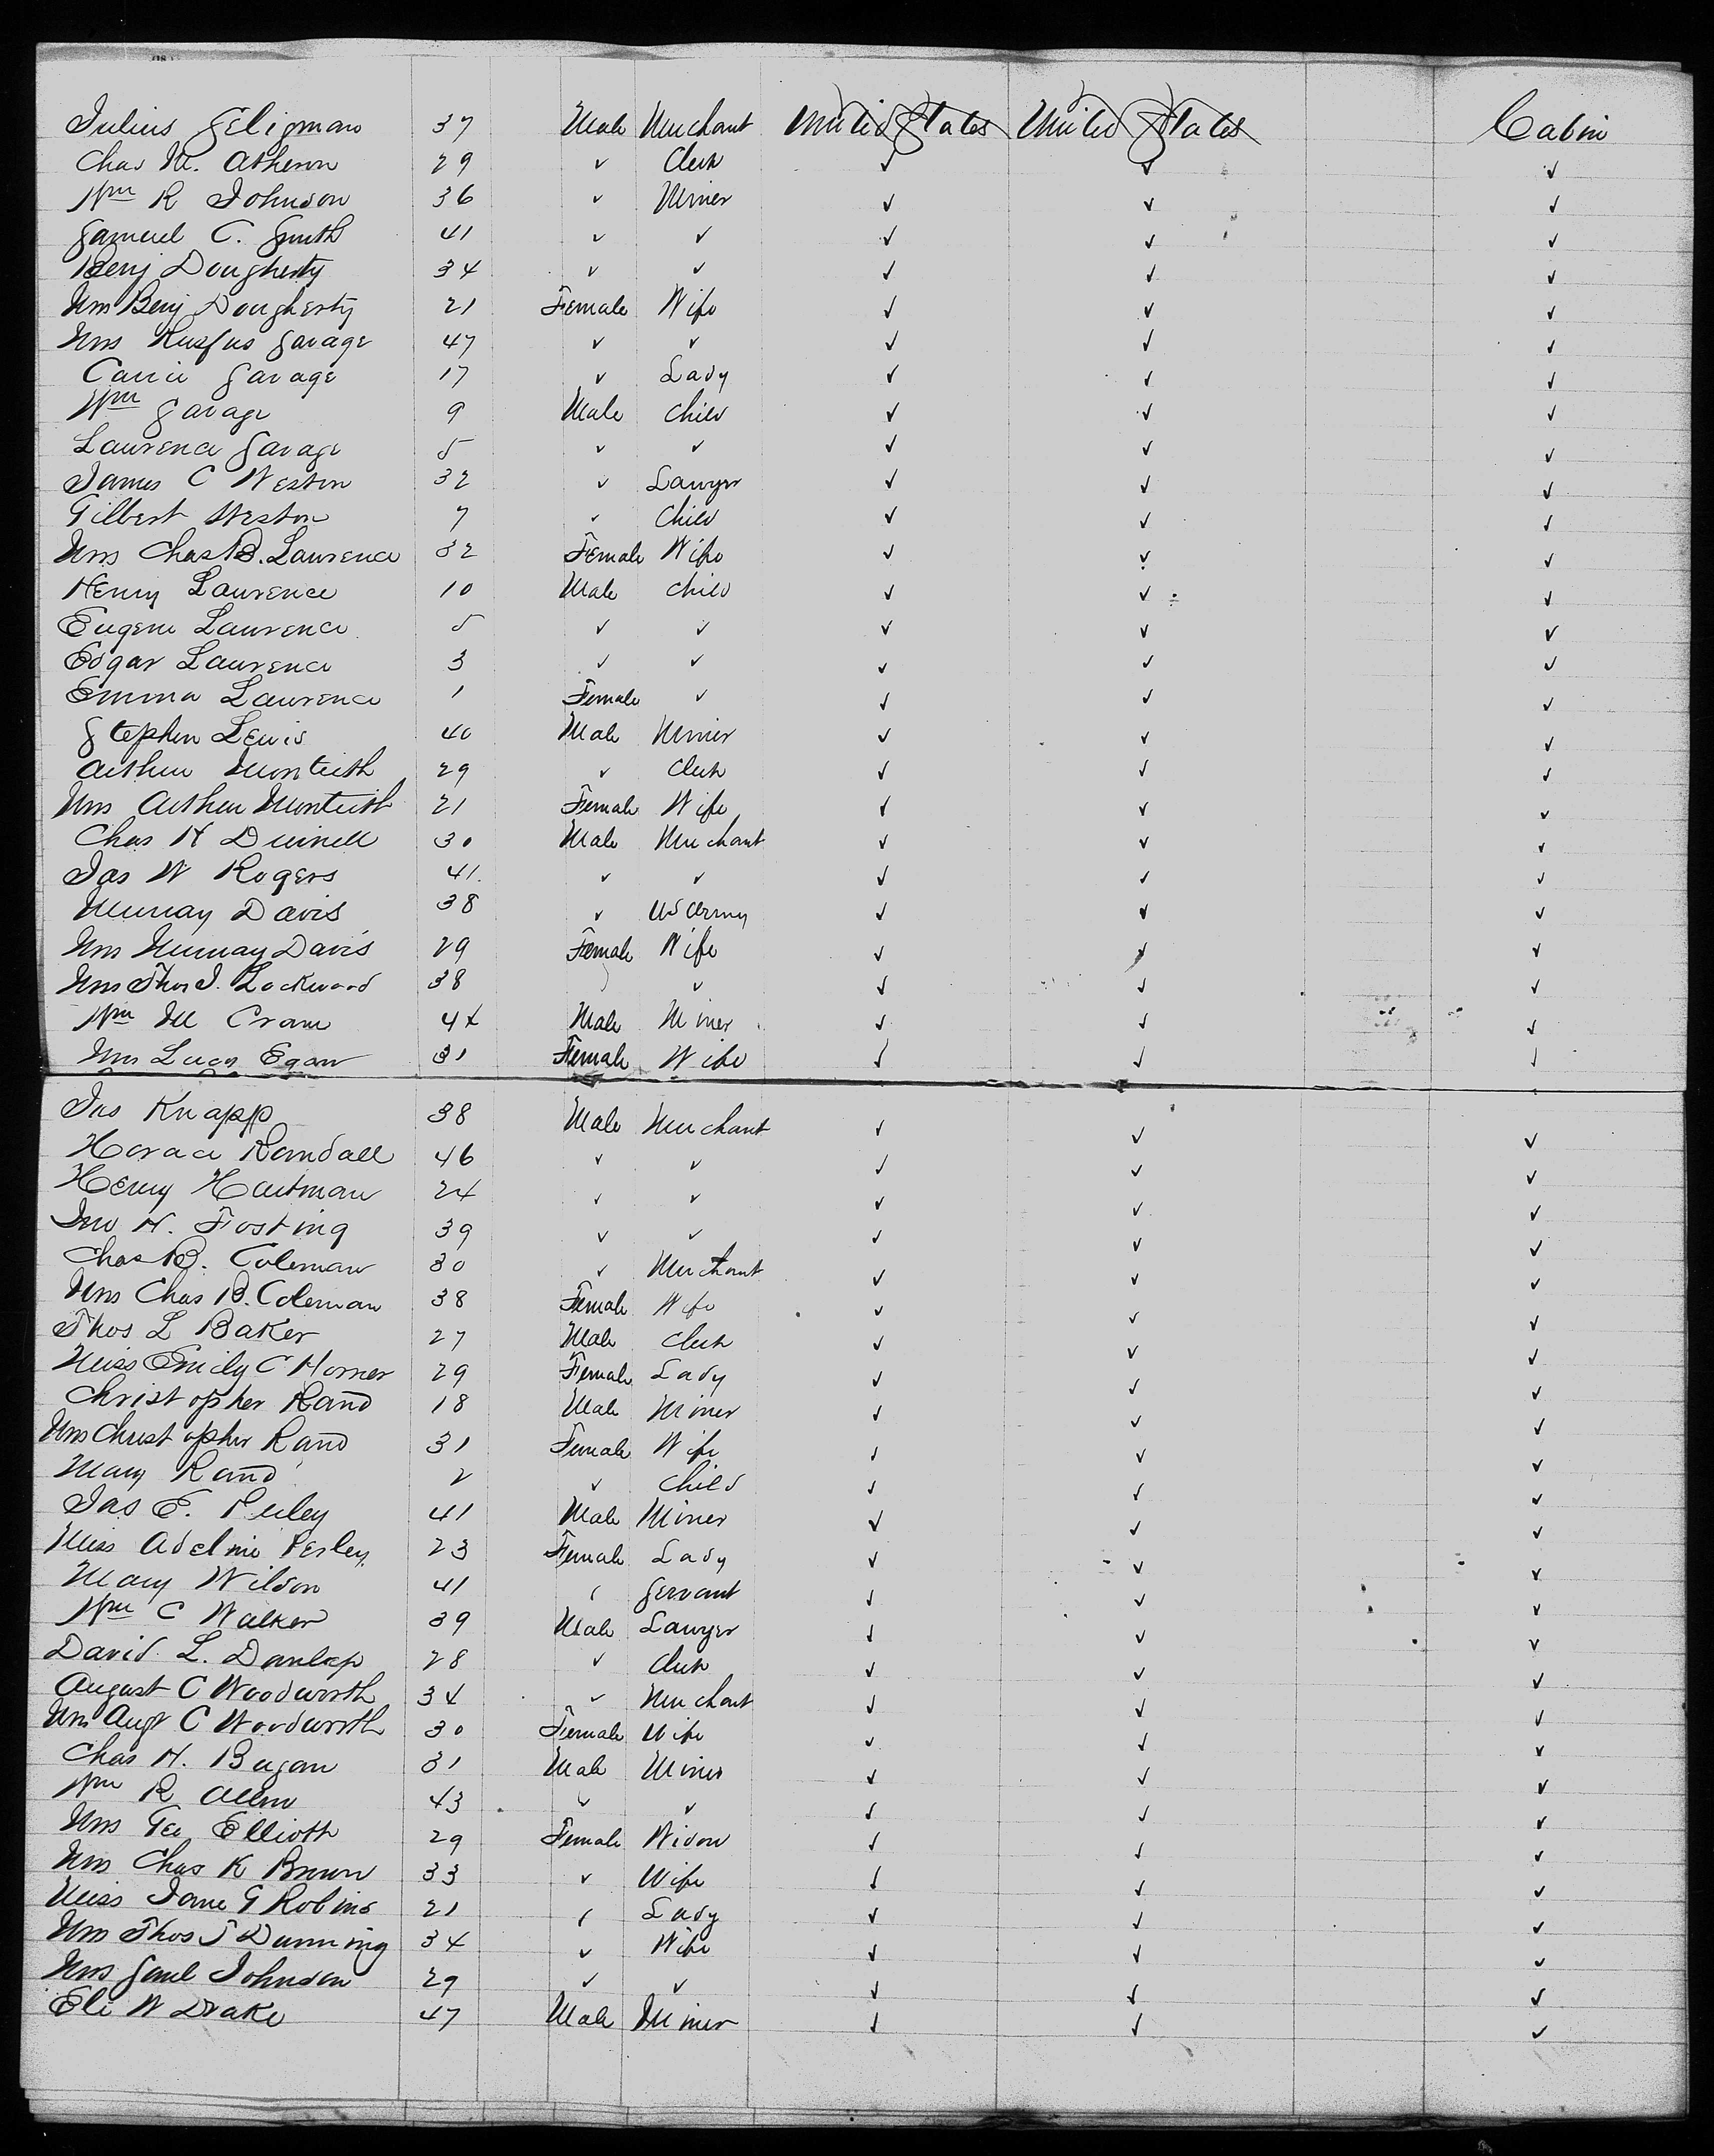 Julius Seligman 37 Male Merchant United States United States Cabin
Chas M. Atherson 29 ✓ Clerk ✓ ✓ ✓
Wm R Johnson 36 ✓ Miner ✓ ✓ ✓
Samuel C. Smith 41 ✓ ✓ ✓ ✓ ✓
Benj Dougherty 34 ✓ ✓ ✓ ✓ ✓
Mrs Benj Dougherty 21 Female Wife ✓ ✓ ✓
Mrs Rusfus Savage 47 ✓ ✓ ✓ ✓ ✓
Carrie Savage 17 ✓ Lady ✓ ✓ ✓
Wm Savage 9 Male Child ✓ ✓ ✓
Laurence Savage 5 ✓ ✓ ✓ ✓ ✓
James C Weston 32 ✓ Lawyer ✓ ✓ ✓
Gilbert Weston 7 ✓ Child ✓ ✓ ✓
Mrs Chas B. Laurence 32 Female Wife ✓ ✓ ✓
Henry Laurence 10 Male Child ✓ ✓ ✓
Eugene Laurence 5 ✓ ✓ ✓ ✓ ✓
Edgar Laurence 3 ✓ ✓ ✓ ✓ ✓
Emma Laurence 1 Female ✓ ✓ ✓ ✓
Stephen Lewis 40 Male Miner ✓ ✓ ✓
Arthur Monteith 29 ✓ Clerk ✓ ✓ ✓
Mrs Arthur Monteith 21 Female Wife ✓ ✓ ✓
Chas H Dwinell 30 Male Merchant ✓ ✓ ✓
Jas W Rogers 41 ✓ ✓ ✓ ✓ ✓
Murray Davis 38 ✓ US Army ✓ ✓ ✓
Mrs Murray Davis 29 Female Wife ✓ ✓ ✓
Mrs Thos J. Lockwood 38 ✓ ✓ ✓ ✓
Wm M Cram 44 Male Miner ✓ ✓ ✓
Mrs Lucy Egan 31 Female Wife ✓ ✓ ✓
Jas Knapp 38 Male Merchant ✓ ✓ ✓
Horace Randall 46 ✓ ✓ ✓ ✓ ✓
Henry Hartman 24 ✓ ✓ ✓ ✓ ✓
Jno H. Fosting 39 ✓ ✓ ✓ ✓ ✓
Chas B. Coleman 30 ✓ Merchant ✓ ✓ ✓
Mrs Chas B. Coleman 38 Female Wife ✓ ✓ ✓
Thos L Baker 27 Male Clerk ✓ ✓ ✓
Miss Emily C Horner 29 Female Lady ✓ ✓ ✓
Christopher Rand 18 Male Miner ✓ ✓ ✓
Mrs Christopher Rand 31 Female Wife ✓ ✓ ✓
Mary Rand 2 ✓ Child ✓ ✓ ✓
Jas E. Perley 41 Male Miner ✓ ✓ ✓
Miss Adeline Perley 23 Female Lady ✓ ✓ ✓
Mary Wilson 41 ✓ Servant ✓ ✓ ✓
Wm C Walker 39 Male Lawyer ✓ ✓ ✓
David L. Dunlap 28 ✓ Clerk ✓ ✓ ✓
August C Woodworth 34 ✓ Merchant ✓ ✓ ✓
Mrs Augt C Woodworth 30 Female Wife ✓ ✓ ✓
Chas H. 31 Male Miner ✓ ✓ ✓
Wm R Allen 43 ✓ ✓ ✓ ✓ ✓
Mrs Geo Elliott 29 Female Widow ✓ ✓ ✓
Mrs Chas K Brown 33 ✓ Wife ✓ ✓ ✓
Miss Jane G Robins 21 ✓ Lady ✓ ✓ ✓
Mrs Thos J Dunning 34 ✓ Wife ✓ ✓ ✓
Mrs Saml Johnson 29 ✓ ✓ ✓ ✓ ✓
Eli W Drake 47 Male Miner ✓ ✓ ✓